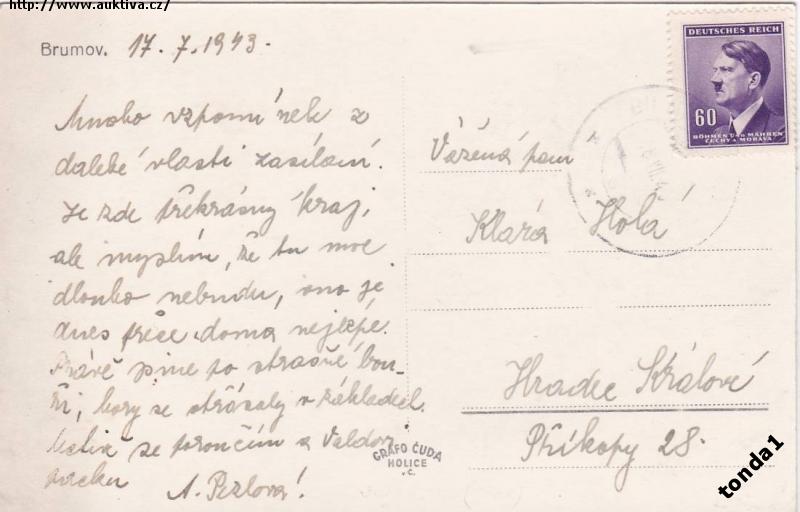 http://www.auktiva.cz/
Brumov. 17. 7. 1943.
Mnoho vzpomínek z
daleké vlasti zasílám.
Je zde překrásný kraj,
ale myslím, že tu moc
dlouho nebudu, ono je
dnes přece doma nejlépe.
Právě jsme to strašné bou-
ři, hory se otřásaly v základech.
se poroučím a
A.
Vážená paní
Klára Holá
Hradec Králové
Příkopy 28.
DEUTSCHES REICH
60
BÖHMEN UND MÄHREN
ČECHY A MORAVA
GRAFO ČUDA
HOLICE
v.Č.
tonda1